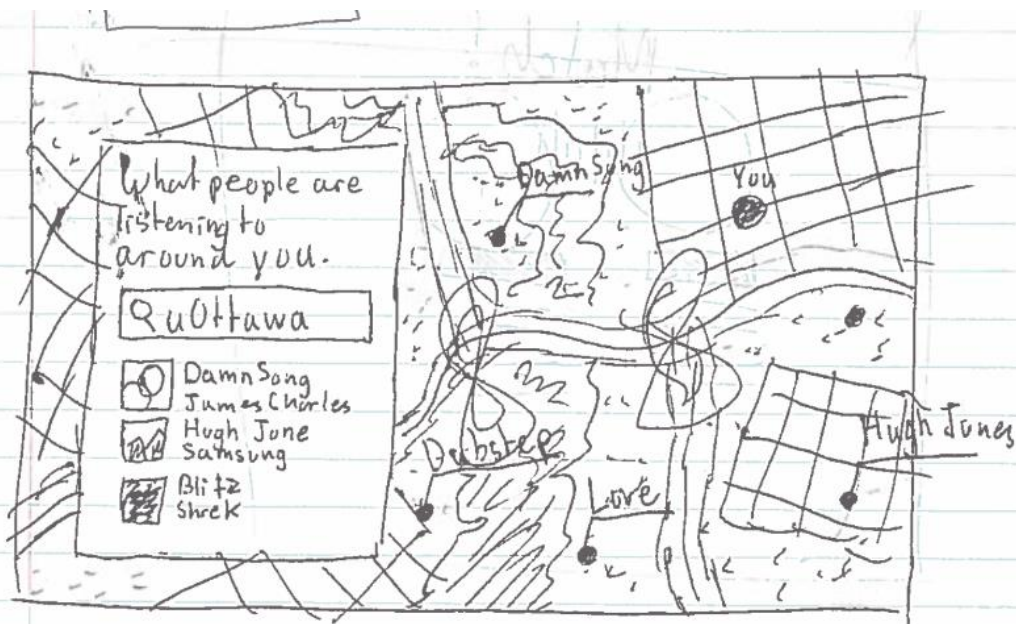 What people are
listening to
around you.
QuOttawa
Damn Song
James Charles
Hugh June
Samsung
Blitz
Shrek
Damn Song
You
Dubstep
Love
Hugh Junes